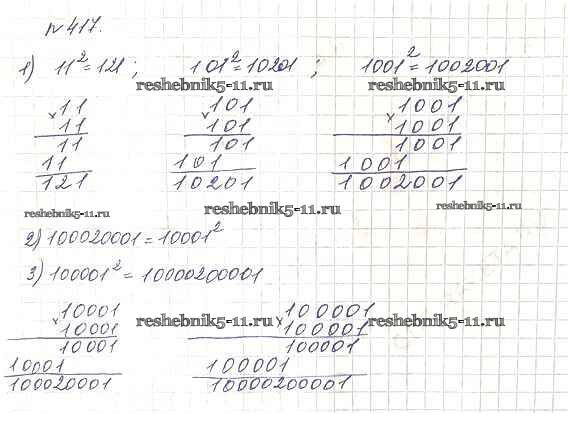 № 417.
1) 11² = 121 ; 101² = 10201 ; 1001² = 1002001
reshebnik5-11.ru reshebnik5-11.ru
11 101 1001
× 11 × 101 × 1001
11 101 1001
11 101 1001
121 10201 1002001
reshebnik5-11.ru reshebnik5-11.ru reshebnik5-11.ru
2) 100020001 = 10001²
3) 100001² = 10000200001
10001 100001
× 10001 × 100001
reshebnik5-11.ru reshebnik5-11.ru
10001 100001
10001 100001
100020001 10000200001